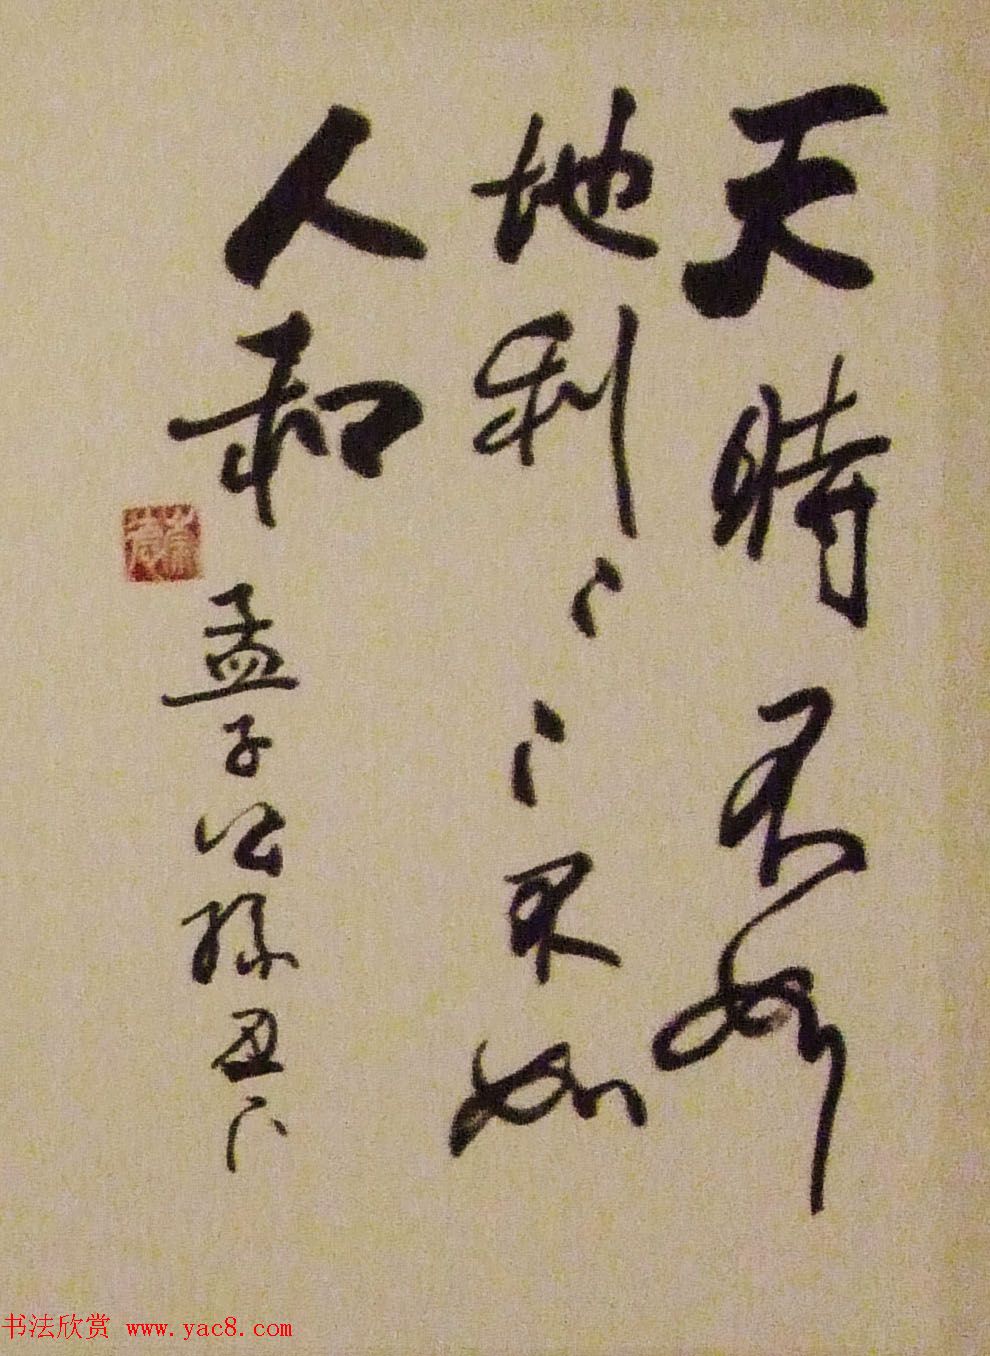 天時不如
地利〻〻不如
人和
孟子公孫丑下
书法欣赏 www.yac8.com